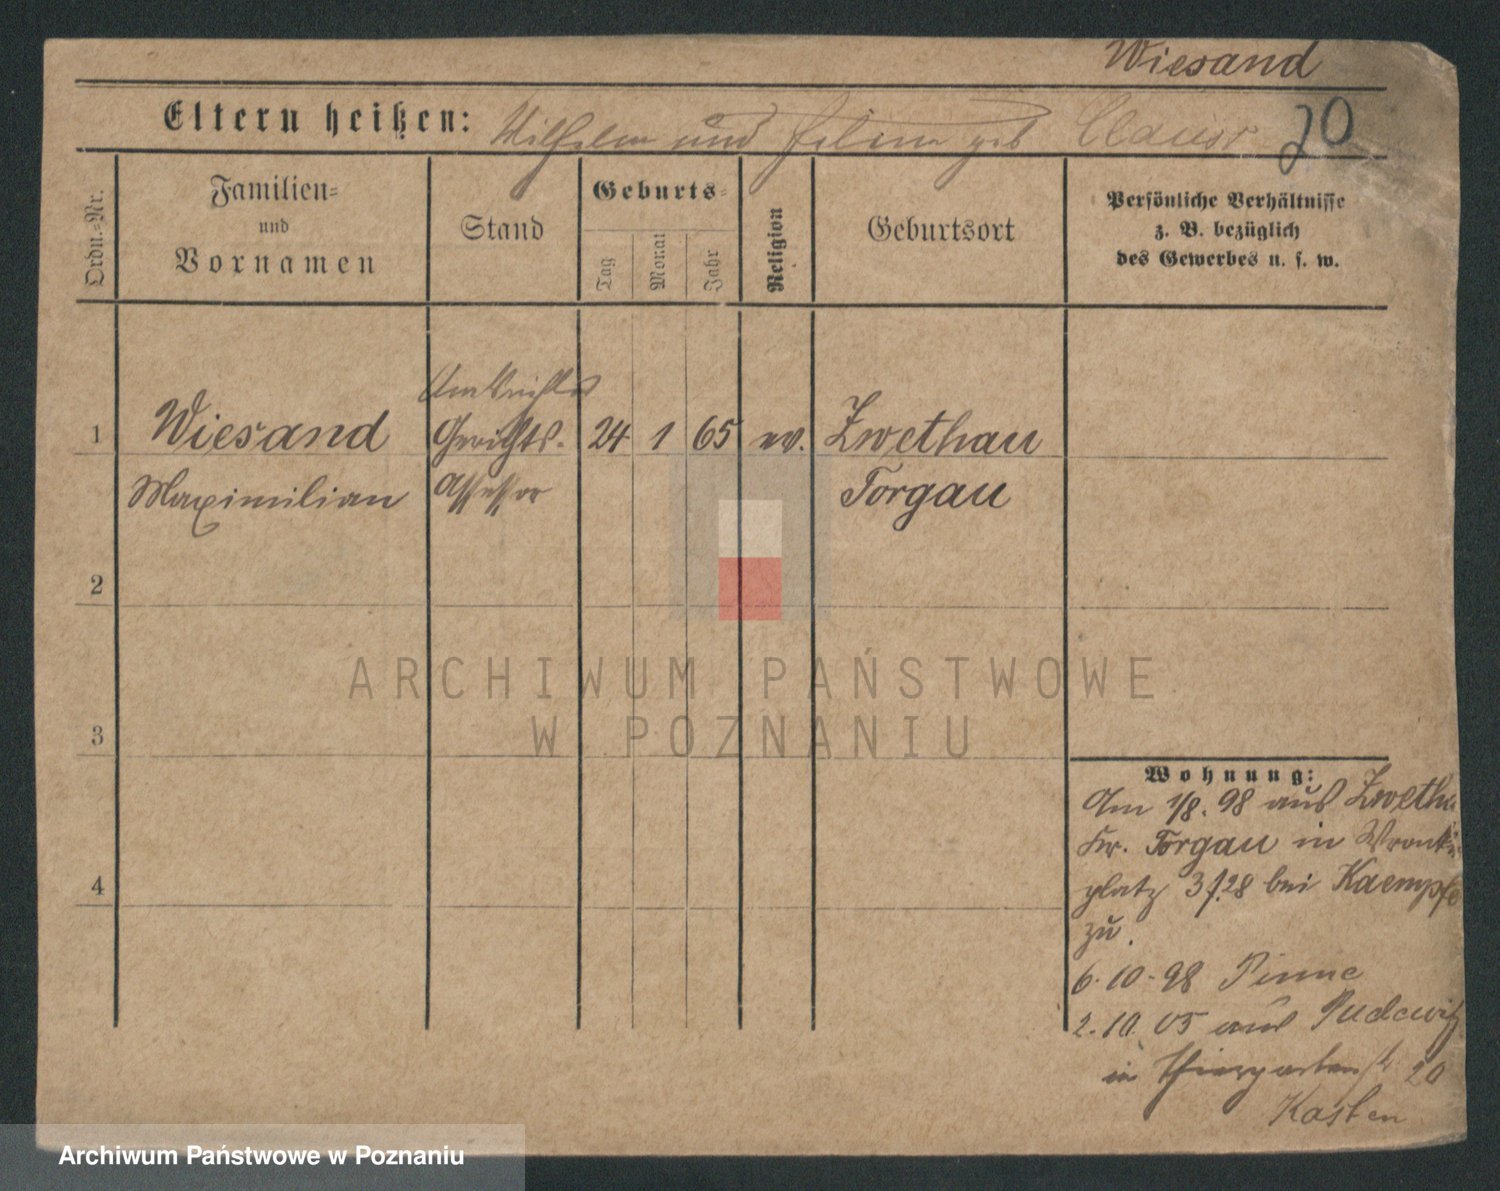 Wiesand
Eltern heißen: Wilhelm und geb
20
Ordn.-Nr.
Familien-
und
Vornamen
Stand
Geburts-
Tag
Monat
Jahr
Religion
Geburtsort
Persönliche Verhältnisse
z. B. bezüglich
des Gewerbes u. s. w.
Amtsrichter
1 Wiesand Gerichts- 24 1 65 ev. Zwethau
Maximilian Assessor Torgau
2
3
4
Wohnung:
Am 1/8. 98 aus Zwethau
Kr. Torgau in
platz 3 bei Kaempfe
zu.
6.10.98 Pinne
2.10.05 aus Pudewitz
in Thiergartenstr 20
Kasten
ARCHIWUM PAŃSTWOWE
W POZNANIU
Archiwum Państwowe w Poznaniu